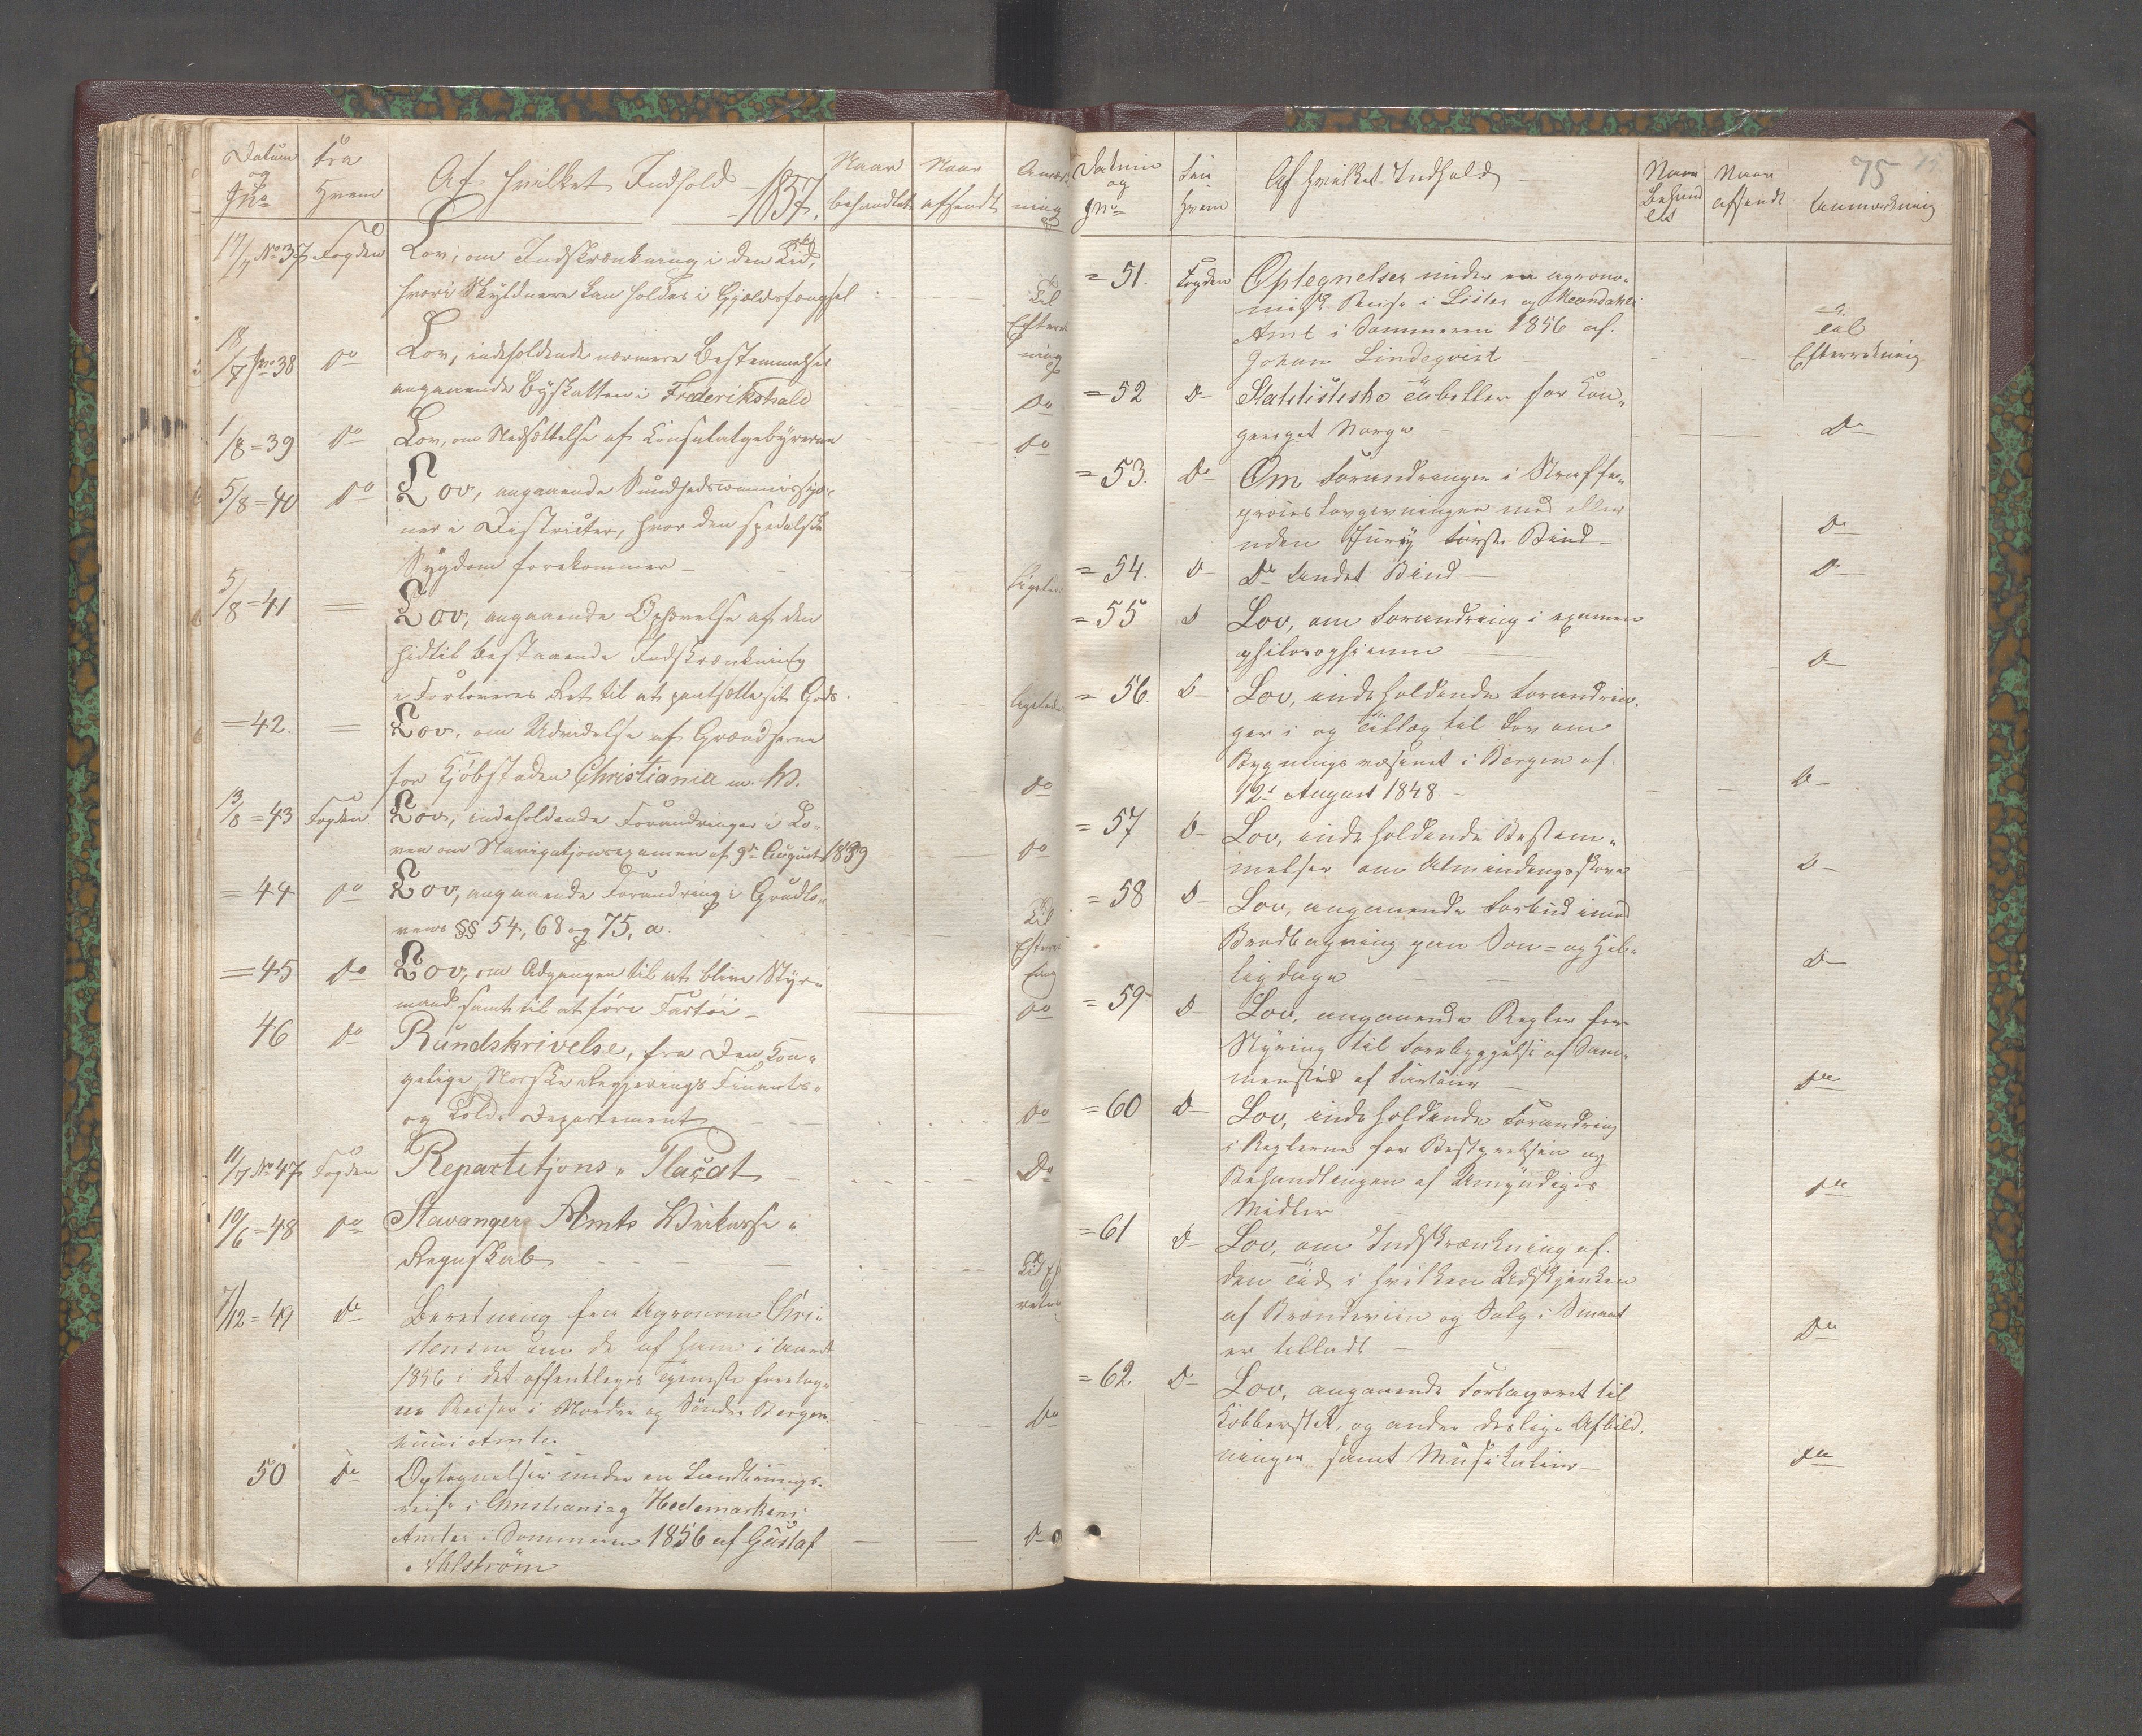 Datum og Jno
Fra Hvem
Af hvilket Indhold – 1857.
Naar behandlet
Naar afsendt
Anmærkning
17/7 No 37 Fogden Lov, om Indskrænkning i den Tid,
hvori Skyldnere kan holdes i Gjældsfængsel Til
Efterretning
18/7 Jno 38 Do Lov, indeholdende nærmere Bestemmelser
angaaende Byskatten i Frederikshald Do
1/8 = 39 Do Lov, om Nedsættelse af Consulatgebyrerne Do
5/8 = 40 Do Lov, angaaende Sundhedscommissjo-
ner i Districter, hvor den spedalske
Sygdom forekommer – Ligeledes
5/8 = 41 = Lov, angaaende Ophævelse af den
hidtil bestaaende Indskrænkning
i Forloveres Ret til at pantsætte sit Gods. ligeledes
= 42. = Lov, om Udvidelse af Grændserne
for Kjöbstaden Christiania m. V. Do
13/8 = 43 Fogden Lov, indeholdende Forandringer i Lo-
ven om Navigatjonsexamen af 9de August 1839 Do
= 44 Do Lov, angaaende Forandring i Grudlo-
vens §§ 54, 68 og 75, a. Til
Efterretning
= 45 Do Lov, om Adgangen til at blive Styr-
mand samt til at före Fartöi – Do
46 Do Rundskrivelse, fra Den Kon-
gelige Norske Regjerings Finants-
og Told-Departement Do
11/7 No 47 Fogden Repartitjons-Placat Do
10/6 = 48 Do Stavanger Amts Veikasse-
Regnskab Til Efterretning
7/12 = 49 Do Beretning fra Agronom Chri-
stensen om de af ham i Aaret
1856 i det offentliges Tjeneste foretag-
ne Reiser i Nordre og Söndre Bergen-
huus Amte. Do
50 Do Optegnelser under en Landbrugs-
reise i Christians og Hedemarkens
Amter i Sommeren 1856 af Gustaf
Ahlström Do
75
Datum og Jno
Fra Hvem
Af hvilket Indhold
Naar Behandlet
Naar afsendt
Anmærkning
= 51. Fogden Optegnelser under en agrono-
misk Reise i Lister og Mandahls
Amt i Sommeren 1856 af
Johan Lindeqvist – Til
Efterretning
= 52 Do Statistiske Tabeller for Kon-
geriget Norge – Do
= 53. Do Om Forandringer i Straffe-
proceslovgivningen med eller
uden Jury Första Bind – Do
= 54. Do Do Andet Bind – Do
= 55 Do Lov, om Forandring i examen
philosophicum Do
= 56. Do Lov, indeholdende Forandrin-
ger i og Tillæg til Lov om
Bygningsvæsenet i Bergen af
12te August 1848 – Do
= 57 Do Lov, indeholdende Bestem-
melser om Almindingsskove Do
= 58 Do Lov, angaaende Forbud imod
Brödbagning paa Sön- og Hel-
ligdage Do
= 59 Do Lov, angaaende Regler for
Styring til Forebyggelse af Sam-
menstöd af Fartöier Do
= 60 Do Lov, indeholdende Forandring
i Reglerne for Bestyrelsen og
Behandlingen af Umyndiges
Midler Do
= 61 Do Lov, om Indskrænkning af
den Tid i hvilken Udskjænken
af Brændeviin og Salg i Smaat
er tilladt – Do
= 62 Do Lov, angaaende Forlagsret til
Kobberstik, og andre deslige Afbild-
ninger samt Musikalier – Do